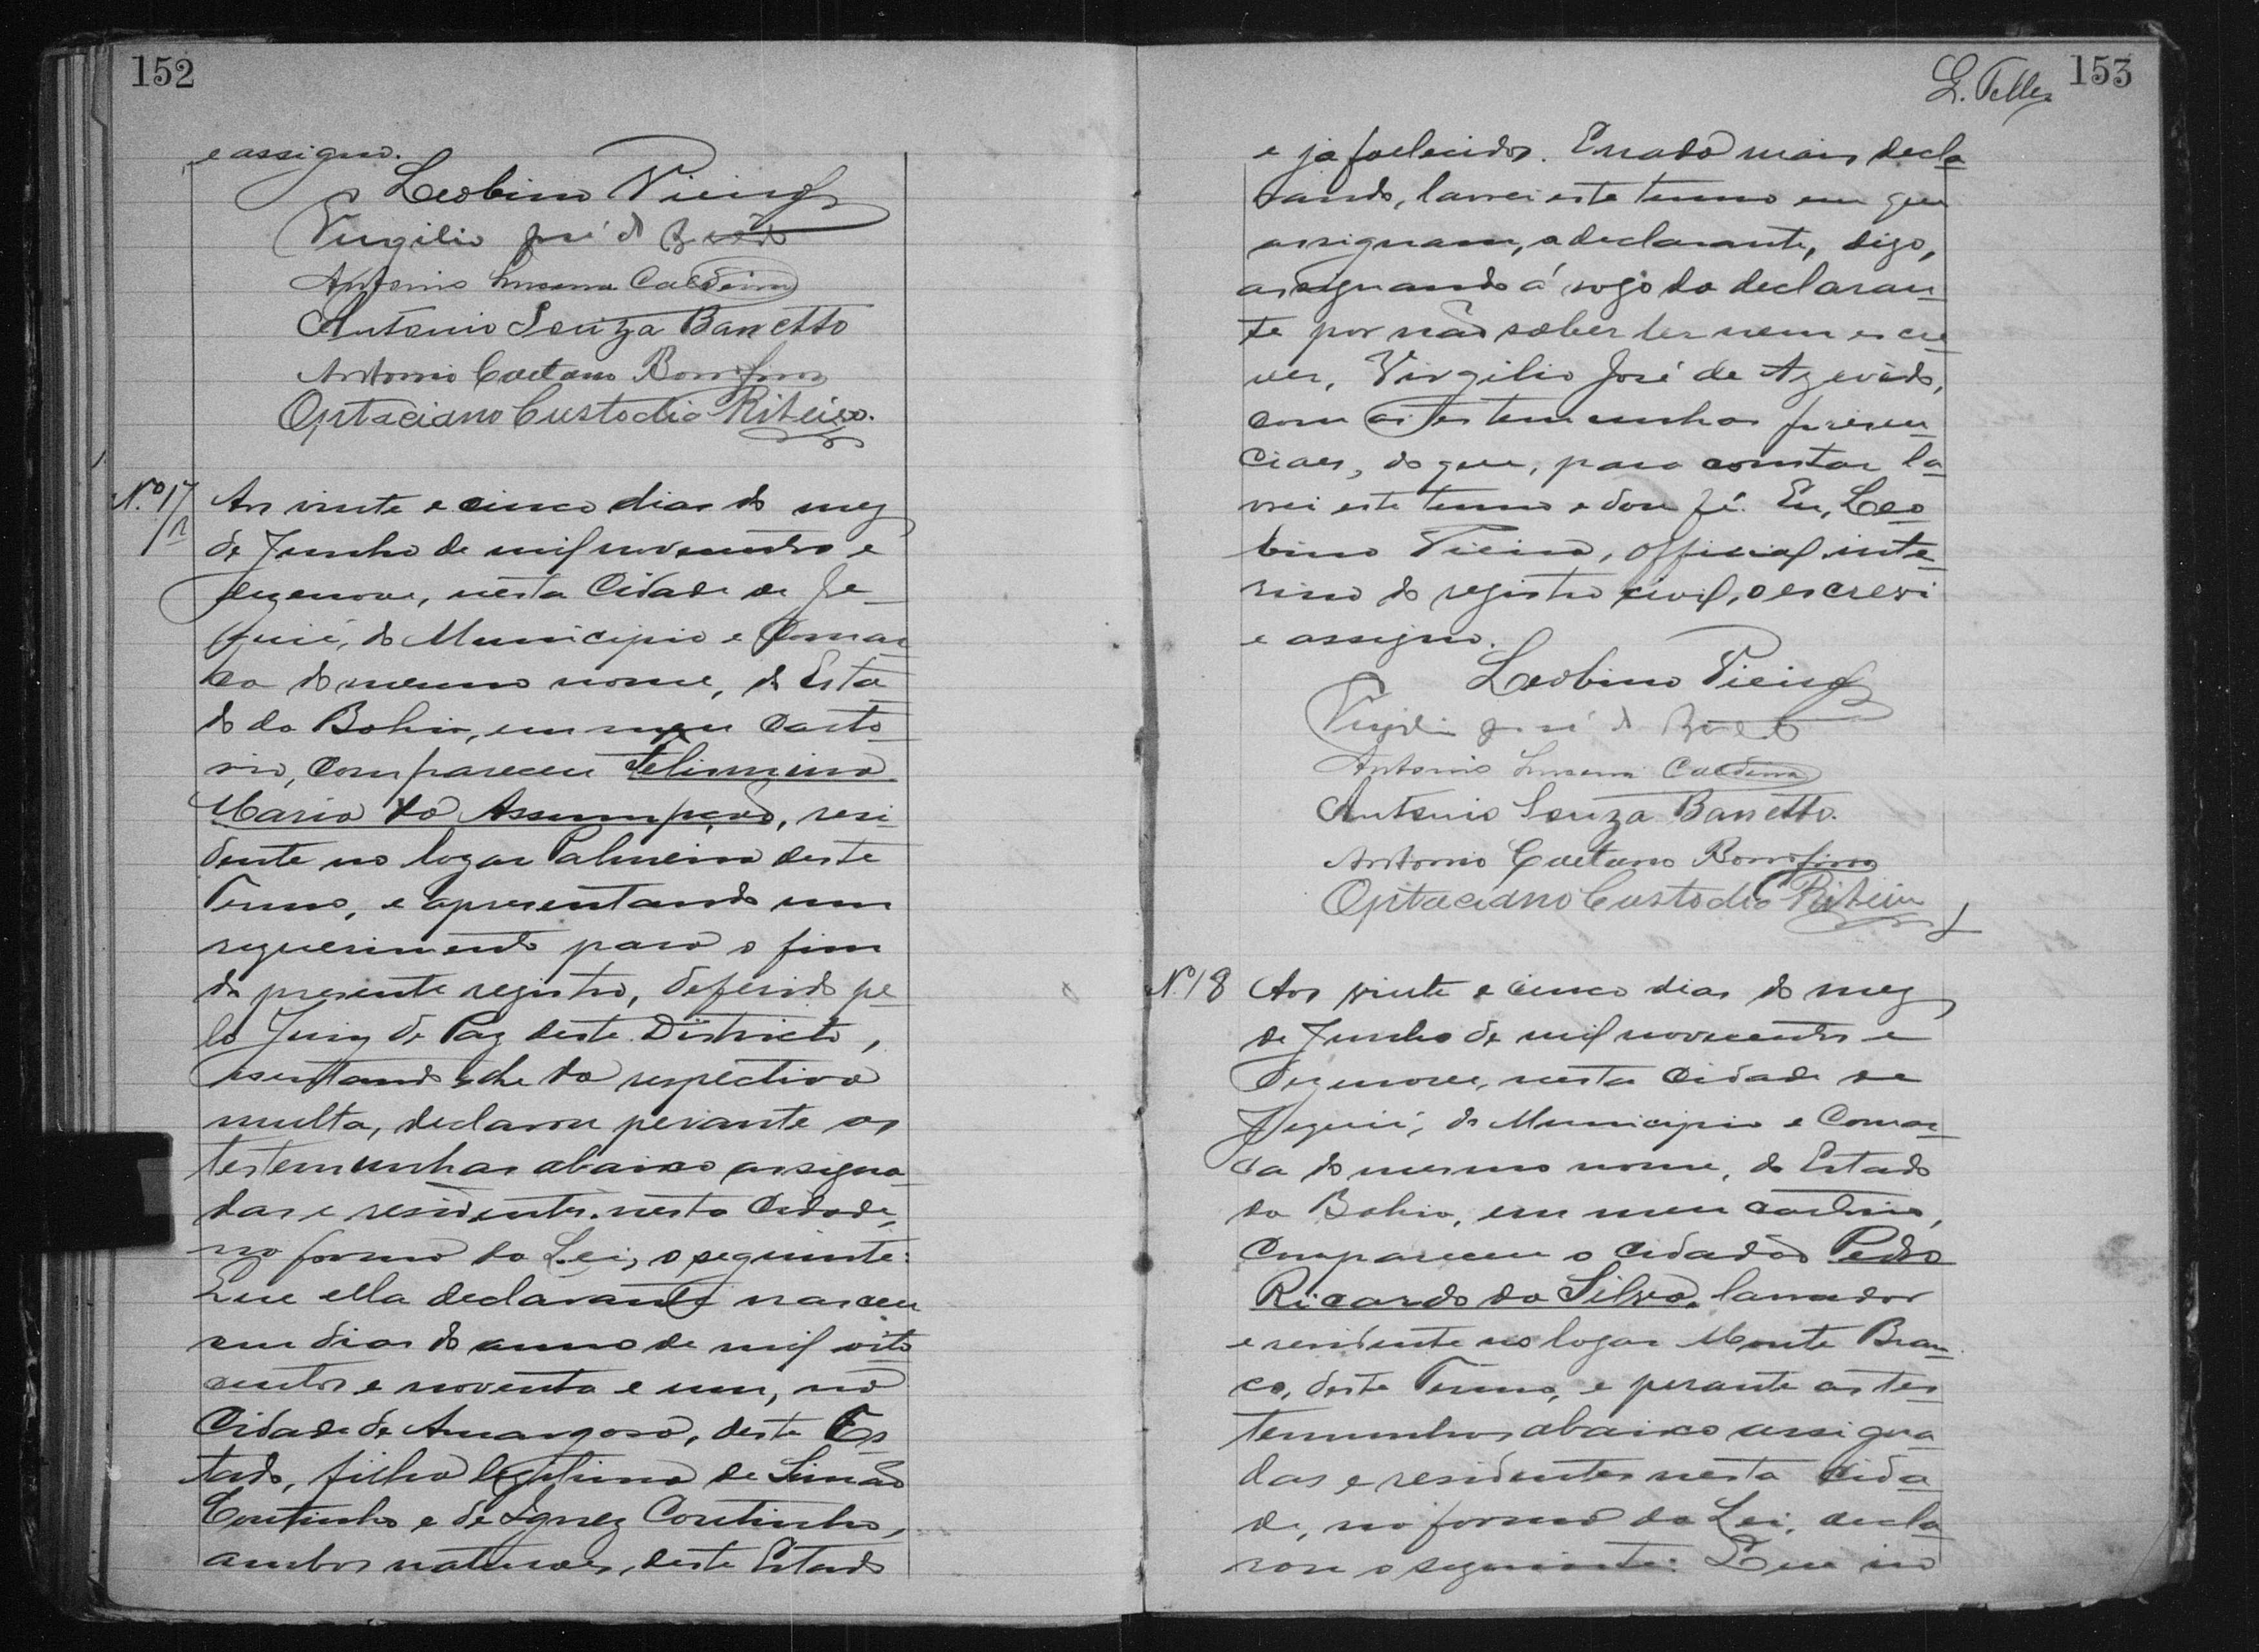 152
e assigno.
Leobino Vieira
Virgilio José d Azevêdo
Antonio Caldeira
Antonio Souza Barretto
Antonio Caetano Bomfim
Optaciano Custodio Ribeiro.
N.º 17
Aos vinte e cinco dias do mez
de Junho de mil novecentos e
dezenove, nesta Cidade de Je-
quié, do Municipio e Comar-
ca do mesmo nome, do Esta-
do da Bahia, em meu Carto-
rio, compareceu Felismina
Maria da Assumpção, resi-
dente no logar Palmeira deste
Termo, e apresentando um
requerimento para o fim
do presente registro, deferido pe-
lo Juiz de Paz deste Districto,
isentando-lhe da respectiva
multa, declarou perante as
testemunhas abaixo assigna-
das e residentes nesta Cidade,
na forma da Lei, o seguinte:
Que ella declarante nasceu
em dias do anno de mil oito
centos e noventa e um, na
Cidade de Amargosa, deste Es-
tado, filha legitima de Simão
Coutinho e de Ignez Coutinho,
ambos naturaes, deste Estado
L. Telles
153
e já fallecidos. E nada mais decla-
rando, lavrei este termo em que
assignam, a declarante, digo,
assignando á rogo da declaran-
te por não saber ler nem escre-
ver, Virgilio José de Azevêdo,
com as testemunhas presen-
ciaes, do que, para constar la-
vrei este termo e dou fé. Eu, Leo-
bino Vieira, official inte-
rino do registro civil, o escrevi
e assigno.
Leobino Vieira
Virgilio José d Azevêdo
Antonio Caldeira
Antonio Souza Barretto.
Antonio Caetano Bomfim
Optaciano Custodio Ribeiro
N.º 18
Aos vinte e cinco dias do mez
de Junho de mil novecentos e
dezenove, nesta Cidade de
Jequié, do Municipio e Comar-
ca do mesmo nome, do Estado
da Bahia, em meu cartorio,
compareceu o cidadão Pedro
Ricardo da Silva, lavrador
e residente no logar Monte Bran-
co, deste Termo, e perante as tes-
temunhas abaixo assigna-
das e residentes nesta Cida-
de, na forma da Lei, decla-
rou o seguinte: Que no